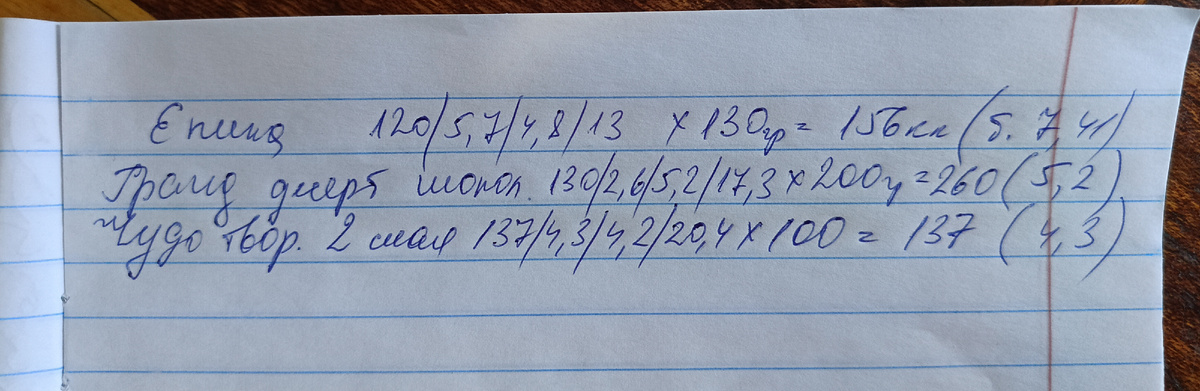 Епица 120/5,7/4,8/13 х 130гр = 156кк (б. 7,41)
Гранд десерт шокол. 130/2,6/5,2/17,3 х 200г = 260 (5,2)
Чудо твор. 2 слоя 137/4,3/4,2/20,4 х 100 = 137 (4,3)